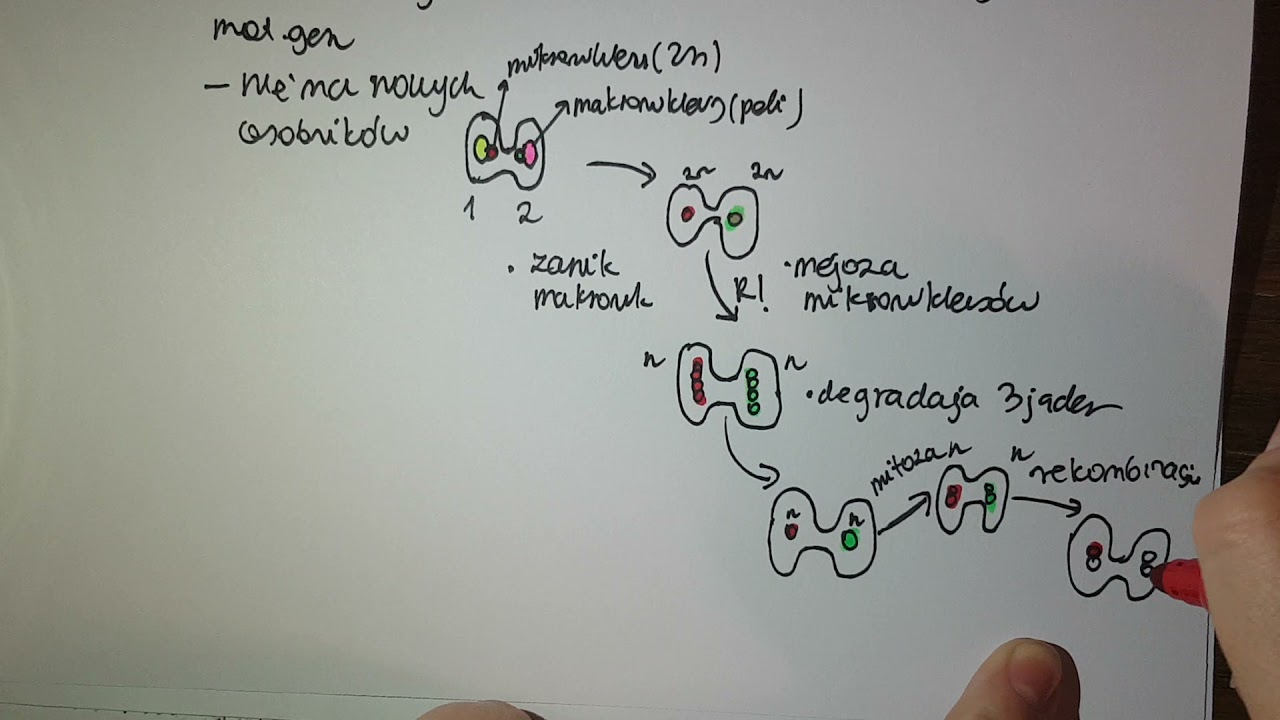 mat.gen
mikronukleus (2n)
– nie ma nowych
osobników
makronukleus (poli)
1 2
2n 2n
• zanik
makronuk
R!
• mejoza
mikronukleusów
n n
• degradacja 3 jąder
mitoza n n
rekombinacji
n n